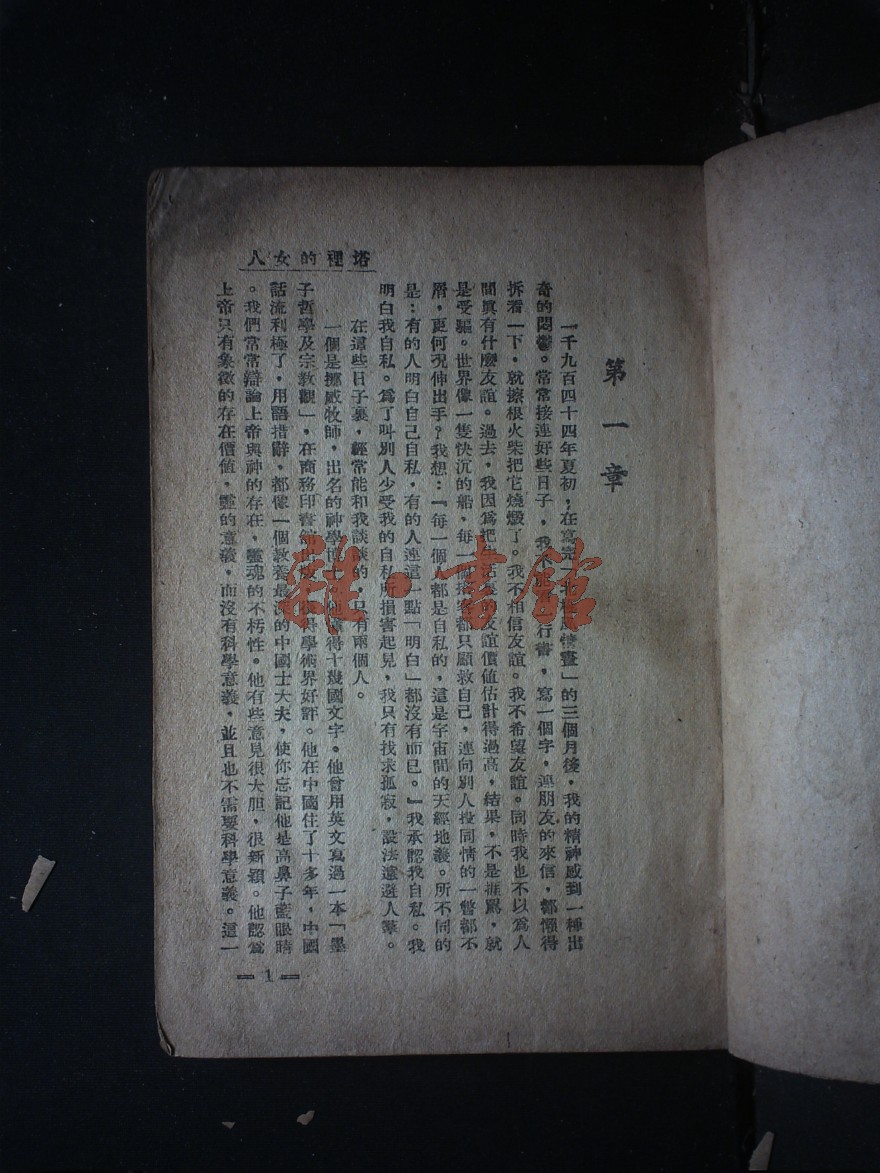 塔裡的女人
第一章
一千九百四十四年夏初，在寫完「北極風情畫」的三個月後，我的精神感到一種出
奇的悶鬱。常常接連好些日子，我不 行書，寫一個字，連朋友的來信，都懶得
拆看一下，就擦根火柴把它燒燬了。我不相信友誼。我不希望友誼。同時我也不以爲人
間眞有什麼友誼。過去，我因爲把 友誼價值估計得過高，結果，不是捱罵，就
是受騙。世界像一隻快沉的船，每一個搭客都只顧救自己，連向別人投同情的一瞥都不
屑，更何況伸出手？我想：「每一個人都是自私的，這是宇宙間的天經地義。所不同的
是：有的人明白自己自私，有的人連這一點「明白」都沒有而已。」我承認我自私。我
明白我自私。爲了叫別人少受我的自私所損害起見，我只有找求孤寂，設法遠避人羣。
在這些日子裏，經常能和我談談的，只有兩個人。
一個是挪威牧師，出名的神學博士。他懂得十幾國文字。他曾用英文寫過一本「墨
子哲學及宗教觀」，在商務印書館 得學術界好評。他在中國住了十多年，中國
話流利極了，用語措辭，都像一個教養最深的中國士大夫，使你忘記他是高鼻子藍眼睛
。我們常常辯論上帝與神的存在，靈魂的不朽性。他有些意見很大胆，很新穎。他認爲
上帝只有象徵的存在價值，靈的意義，而沒有科學意義，並且也不需要科學意義。這一
1
雜·書館